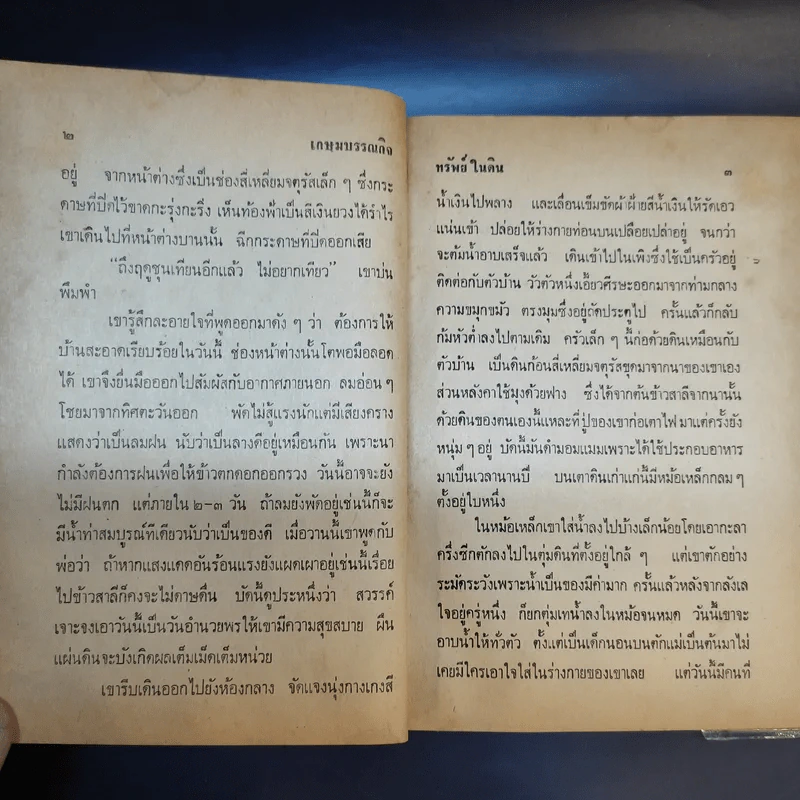 ๒
เกษมบรรณกิจ
อยู่ จากหน้าต่างซึ่งเป็นช่องสี่เหลี่ยมจตุรัสเล็ก ๆ ซึ่งกระ
ดาษที่ปิดไว้ขาดกะรุ่งกะริ่ง เห็นท้องฟ้าเป็นสีเงินยวงได้รำไร
เขาเดินไปที่หน้าต่างบานนั้น ฉีกกระดาษที่ปิดออกเสีย
“ถึงฤดูชุนเทียนอีกแล้ว ไม่อยากเทียว” เขาบ่น
พึมพำ
เขารู้สึกละอายใจที่พูดออกมาดัง ๆ ว่า ต้องการให้
บ้านสะอาดเรียบร้อยในวันนี้ ช่องหน้าต่างนั้นโตพอมือลอด
ได้ เขาจึงยื่นมือออกไปสัมผัสกับอากาศภายนอก ลมอ่อน ๆ
โชยมาจากทิศตะวันออก พัดไม่สู้แรงนักแต่มีเสียงคราง
แสดงว่าเป็นลมฝน นับว่าเป็นลางดีอยู่เหมือนกัน เพราะนา
กำลังต้องการฝนเพื่อให้ข้าวตกดอกออกรวง วันนี้อาจจะยัง
ไม่มีฝนตก แต่ภายใน ๒-๓ วัน ถ้าลมยังพัดอยู่เช่นนี้ก็จะ
มีน้ำท่าสมบูรณ์ทีเดียวนับว่าเป็นของดี เมื่อวานนี้เขาพูดกับ
พ่อว่า ถ้าหากแสงแดดอันร้อนแรงยังแผดเผาอยู่เช่นนี้เรื่อย
ไปข้าวสาลีก็คงจะไม่ดาษดื่น บัดนี้ดูประหนึ่งว่า สวรรค์
เจาะจงเอาวันนี้เป็นวันอำนวยพรให้เขามีความสุขสบาย ผืน
แผ่นดินจะบังเกิดผลเต็มเม็ดเต็มหน่วย
เขารีบเดินออกไปยังห้องกลาง จัดแจงนุ่งกางเกงสี
ทรัพย์ในดิน
๓
น้ำเงินไปพลาง และเลื่อนเข็มขัดผ้าฝ้ายสีน้ำเงินให้รัดเอว
แน่นเข้า ปล่อยให้ร่างกายท่อนบนเปลือยเปล่าอยู่ จนกว่า
จะต้มน้ำอาบเสร็จแล้ว เดินเข้าไปในเพิงซึ่งใช้เป็นครัวอยู่
ติดต่อกับตัวบ้าน วัวตัวหนึ่งเอี้ยวศีรษะออกมาจากท่ามกลาง
ความขมุกขมัว ตรงมุมซึ่งอยู่ถัดประตูไป ครั้นแล้วก็กลับ
ก้มหัวต่ำลงไปตามเดิม ครัวเล็ก ๆ นี้ก่อด้วยดินเหมือนกับ
ตัวบ้าน เป็นดินก้อนสี่เหลี่ยมจตุรัสขุดมาจากนาของเขาเอง
ส่วนหลังคาใช้มุงด้วยฟาง ซึ่งได้จากต้นข้าวสาลีจากนานั้น
ด้วยดินของตนเองนี้แหละที่ปู่ของเขาก่อเตาไฟมาแต่ครั้งยัง
หนุ่ม ๆ อยู่ บัดนี้มันดำมอมแมมเพราะได้ใช้ประกอบอาหาร
มาเป็นเวลานานปี บนเตาดินเก่าแก่นี้มีหม้อเหล็กกลม ๆ
ตั้งอยู่ใบหนึ่ง
ในหม้อเหล็กเขาใส่น้ำลงไปบ้างเล็กน้อยโดยเอากะลา
ครึ่งซีกตักลงไปในตุ่มดินที่ตั้งอยู่ใกล้ ๆ แต่เขาตักอย่าง
ระมัดระวังเพราะน้ำเป็นของมีค่ามาก ครั้นแล้วหลังจากลังเล
ใจอยู่ครู่หนึ่ง ก็ยกตุ่มเทน้ำลงในหม้อจนหมด วันนี้เขาจะ
อาบน้ำให้ทั่วตัว ตั้งแต่เป็นเด็กนอนบนตักแม่เป็นต้นมาไม่
เคยมีใครเอาใจใส่ในร่างกายของเขาเลย แต่วันนี้มีคนที่